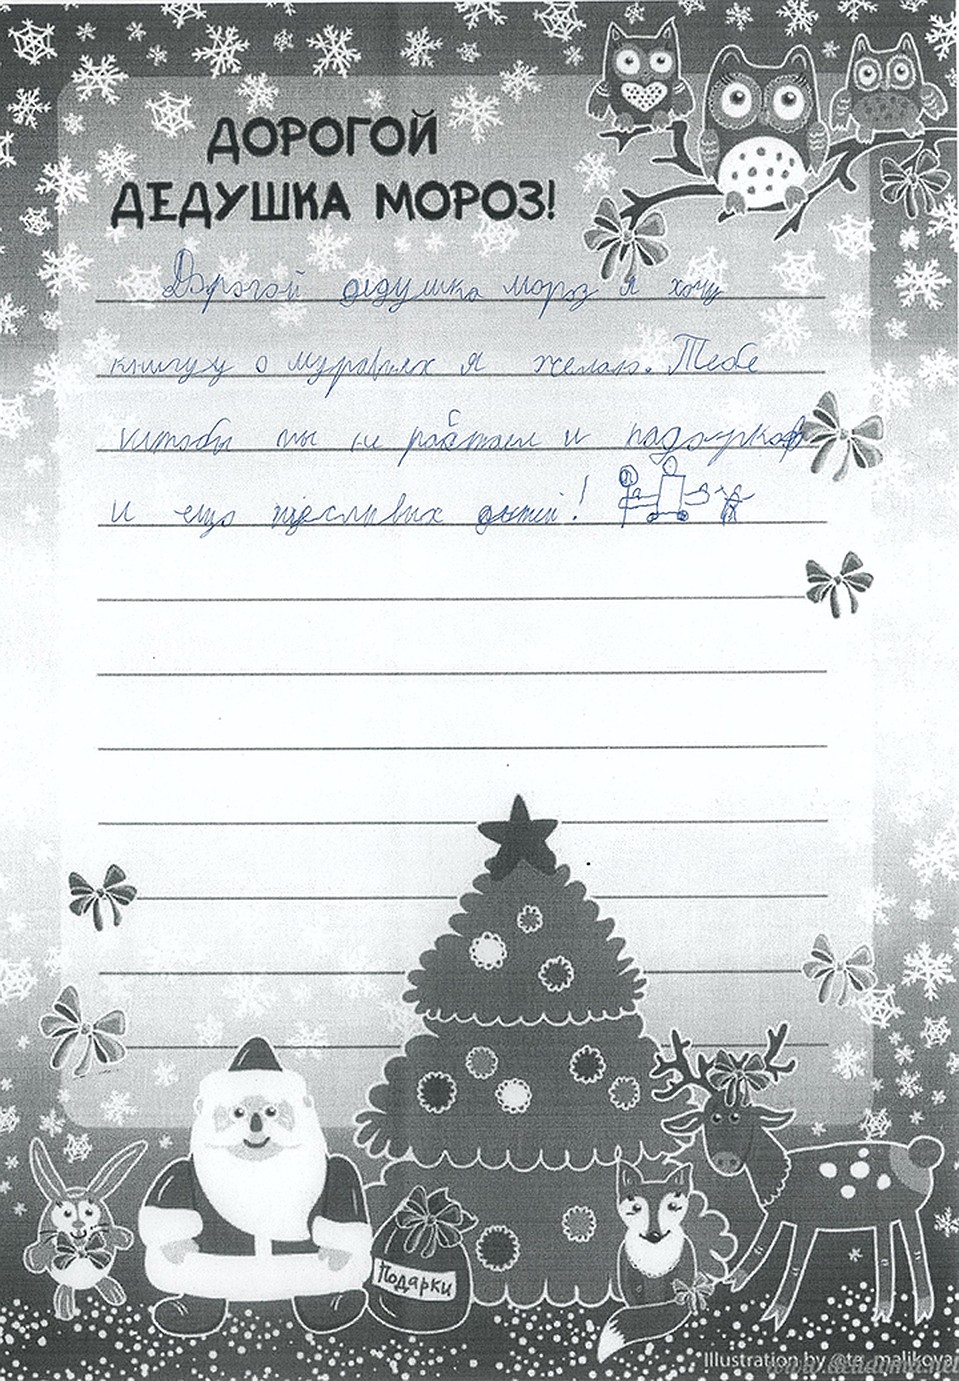 ДОРОГОЙ
ДЕДУШКА МОРОЗ!
Дорогой дедушка мороз я хочу
книгу о муравьях я желаю. Тебе
чтобы ты не работал и подарков
и ещо щасливых детей!
Подарки
Illustration by @te_malikova